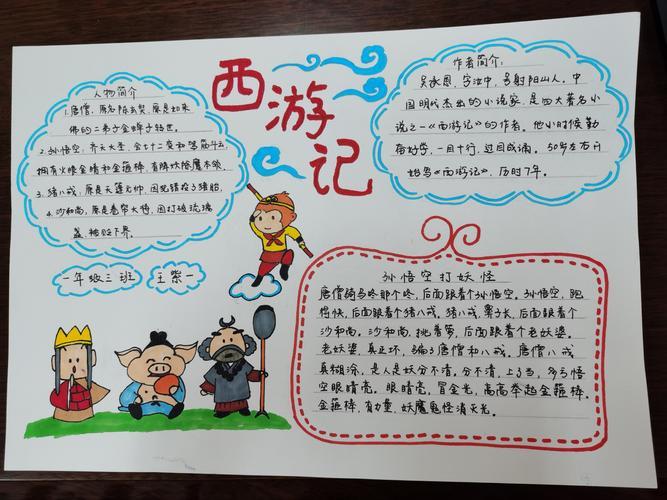 西游记
人物简介
1.唐僧,原名陈玄奘,原是如来
佛的二弟子金蝉子转世。
2.孙悟空:齐天大圣,会七十二变和驾筋斗云,
拥有火眼金睛和金箍棒,有降妖除魔本领。
3.猪八戒:原是天蓬元帅,因见错投了猪胎,
4.沙和尚,原是卷帘大将,因打破琉璃
盏,被贬下界。
一年级三班
王紫一
作者简介:
吴承恩,字汝中,号射阳山人。中
国明代杰出的小说家,是四大著名小
说之一《西游记》的作者。他小时候勤
奋好学,一目十行,过目成诵。50岁左右
始写《西游记》,历时7年。
孙悟空打妖怪
唐僧骑马咚那个咚,后面跟着个孙悟空。孙悟空,跑
得快,后面跟着个猪八戒。猪八戒,鼻子长,后面跟着个
沙和尚。沙和尚,挑着箩,后面跟着个老妖婆。
老妖婆,真正坏,骗了唐僧和八戒。唐僧八戒
真糊涂,是人是妖分不清。分不清,上了当,多亏悟
空眼睛亮。眼睛亮,冒金光,高高举起金箍棒。
金箍棒,有力量,妖魔鬼怪消灭光。